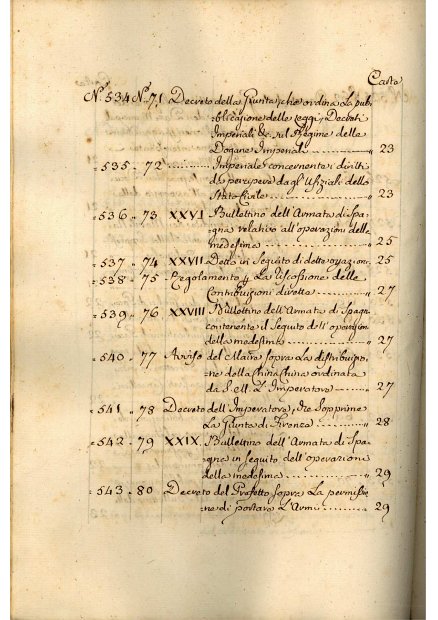 Carte
N.º 534 N.º 71 Decreto della Giunta, che ordina La pub-
blicazione delle Leggi, Decreti
Imperiali &c. sul Regime delle
Dogane Imperiali 23
= 535 - 72 Imperiale concernente i diritti
da percipere dagl'Ufiziali dello
Stato Civile 23
= 536 - 73 XXVI Bullettino dell'Armata di Spa-
gna relativo all'operazioni della
medesima 25
= 537 - 74 XXVII Detto in Seguito di dette operazioni. 25
= 538 - 75 Regolamento p. La riscossione delle
Contribuzioni dirette 27
= 539 - 76 XXVIII Bullettino dell'Armata di Spagna
contenente il Seguito dell'operazioni
della medesima 27
= 540 - 77 Avviso del Maire sopra La distribuzio-
ne della china china ordinata
da S. M. L'Imperatore 27
= 541 - 78 Decreto dell'Imperatore, che Sopprime
La Giunta di Firenze 28
= 542 - 79 XXIX Bullettino dell'Armata di Spa-
gna in seguito dell'operazioni
della medesima 29
= 543 - 80 Decreto del Prefetto sopra La permissio-
ne di portare L'Armi 29